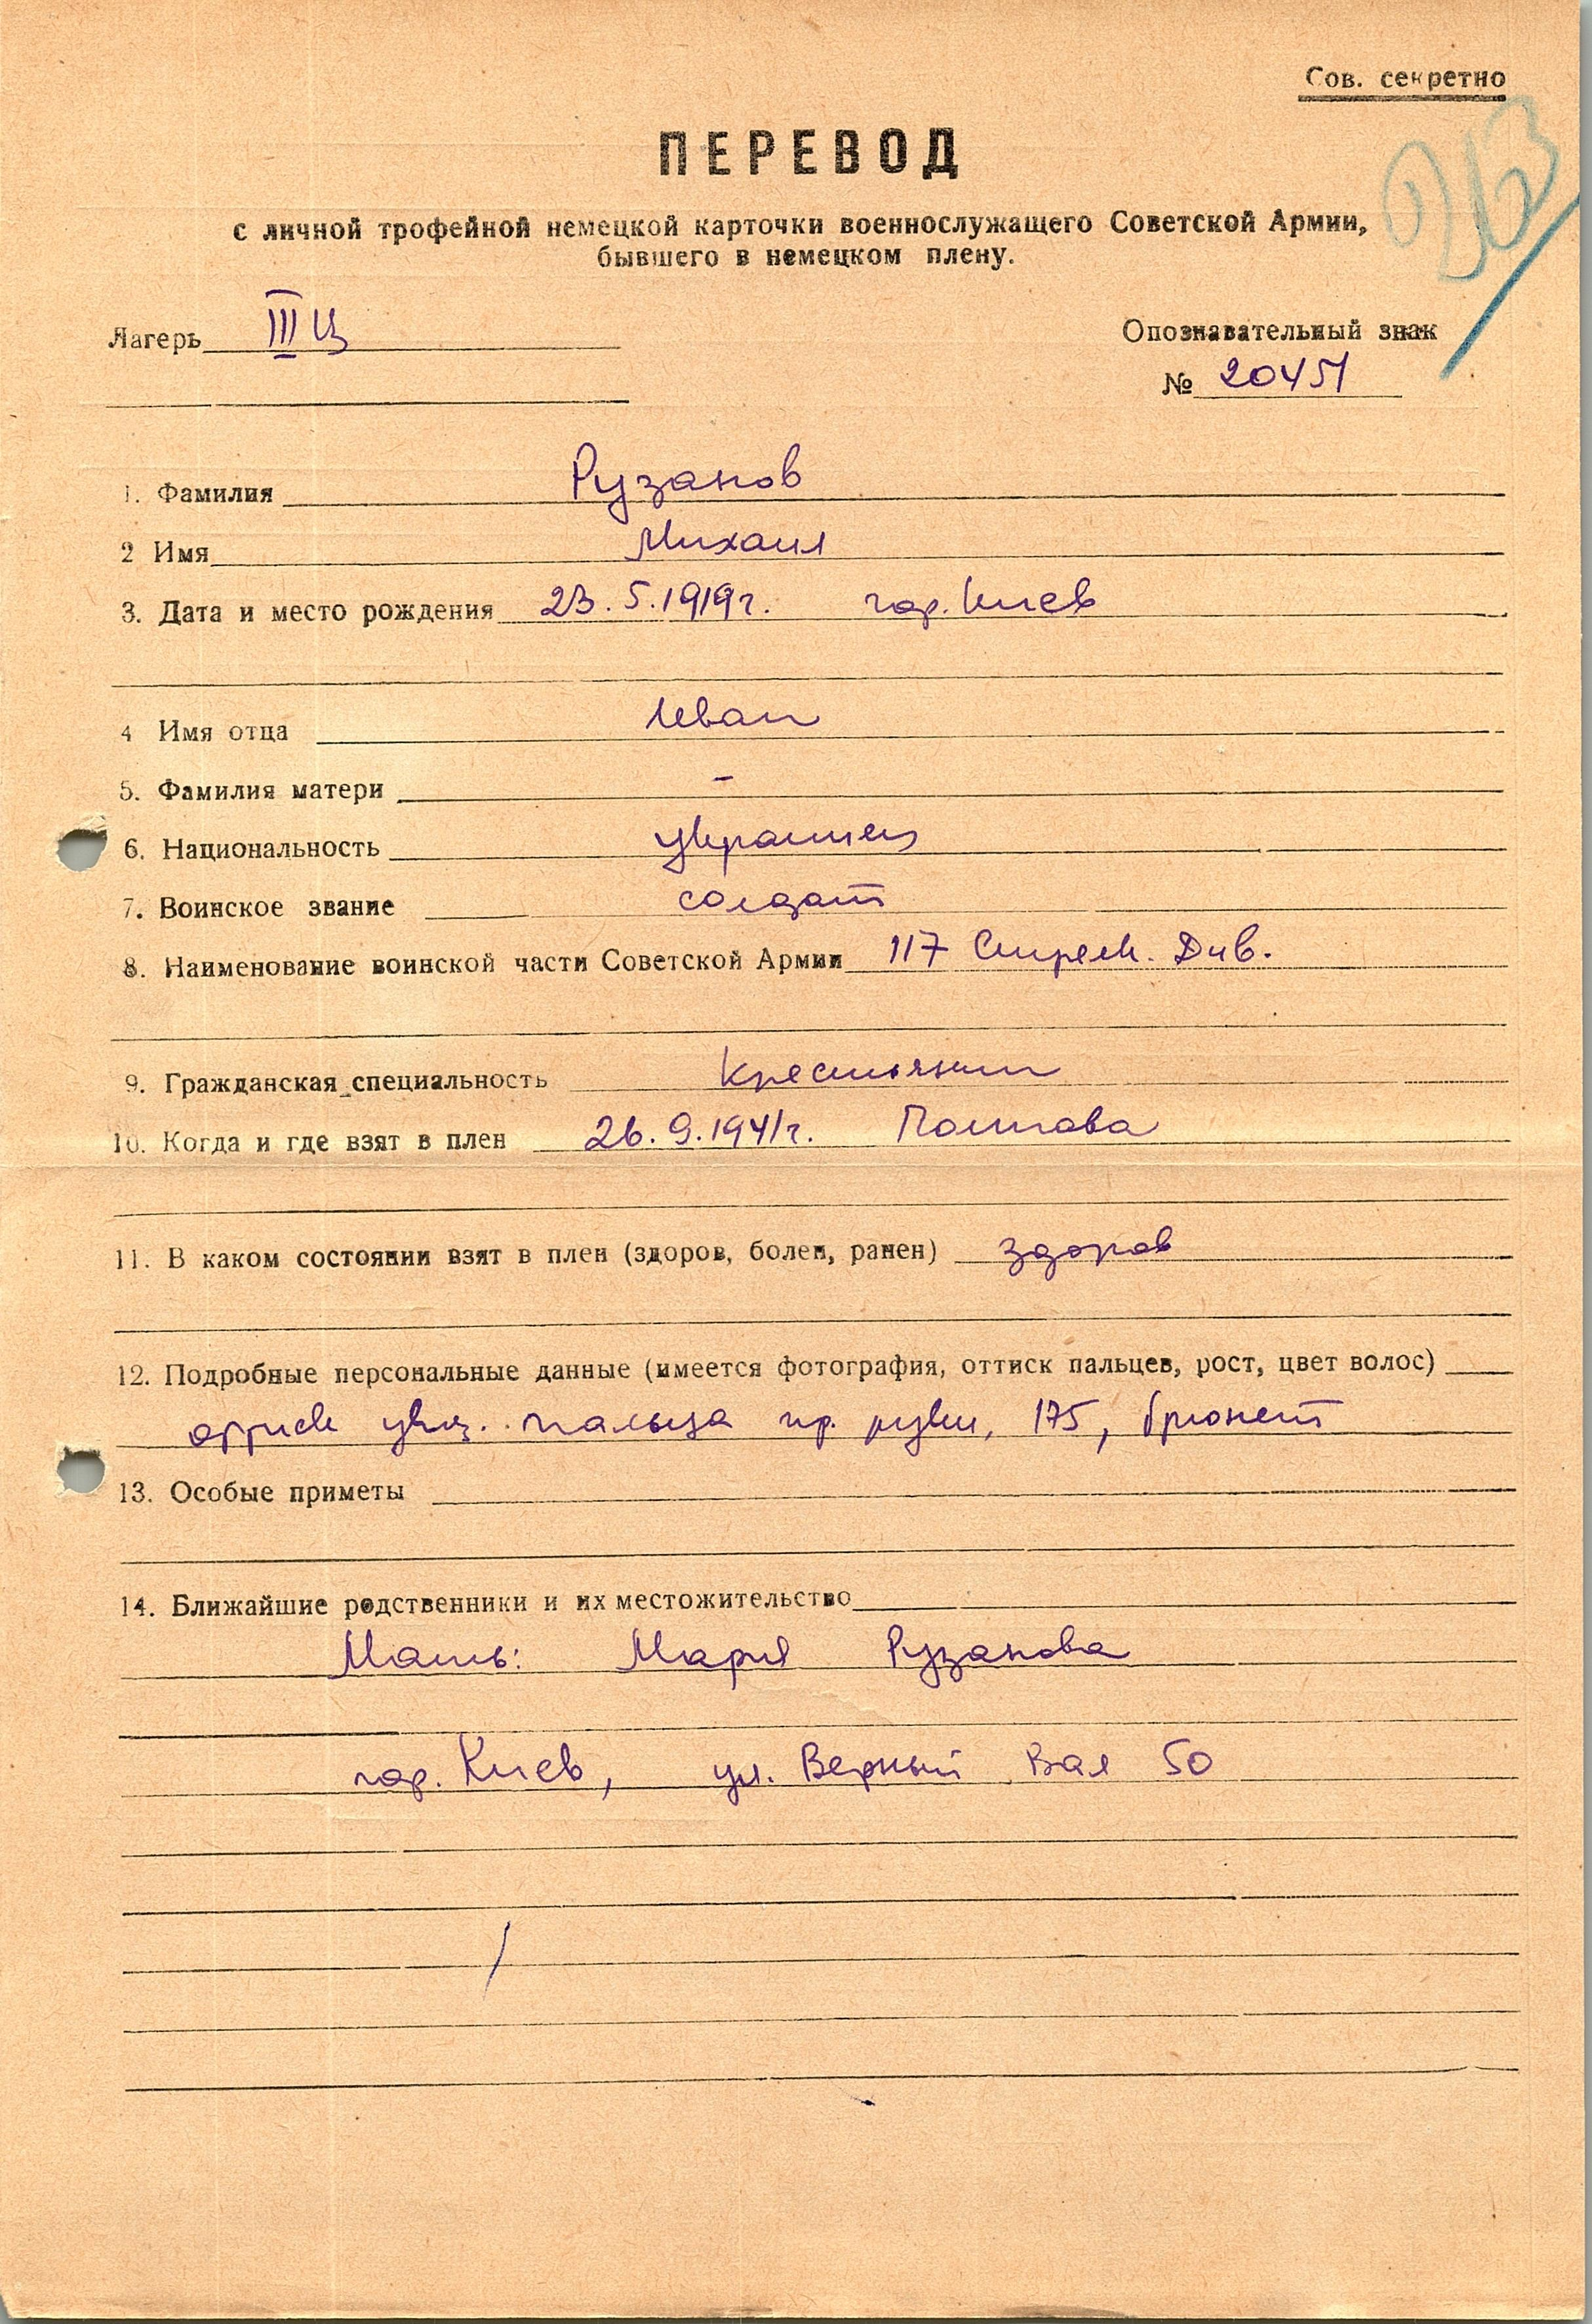 Сов. секретно
263
ПЕРЕВОД
с личной трофейной немецкой карточки военнослужащего Советской Армии,
бывшего в немецком плену.
Лагерь III Ц
Опознавательный знак
№ 20451
1. Фамилия Рузанов
2 Имя Михаил
3. Дата и место рождения 23.5.1919г. гор. Киев
4 Имя отца Иван
5. Фамилия матери –
6. Национальность украинец
7. Воинское звание солдат
8. Наименование воинской части Советской Армии 117 Стрелк. Див.
9. Гражданская специальность крестьянин
10. Когда и где взят в плен 26.9.1941г. Полтава
11. В каком состоянии взят в плен (здоров, болен, ранен) здоров
12. Подробные персональные данные (имеется фотография, оттиск пальцев, рост, цвет волос)
оттиск указ. пальца пр. руки, 175, брюнет
13. Особые приметы
14. Ближайшие родственники и их местожительство
Мать: Мария Рузанова
гор. Киев, ул. Верный Вал 50